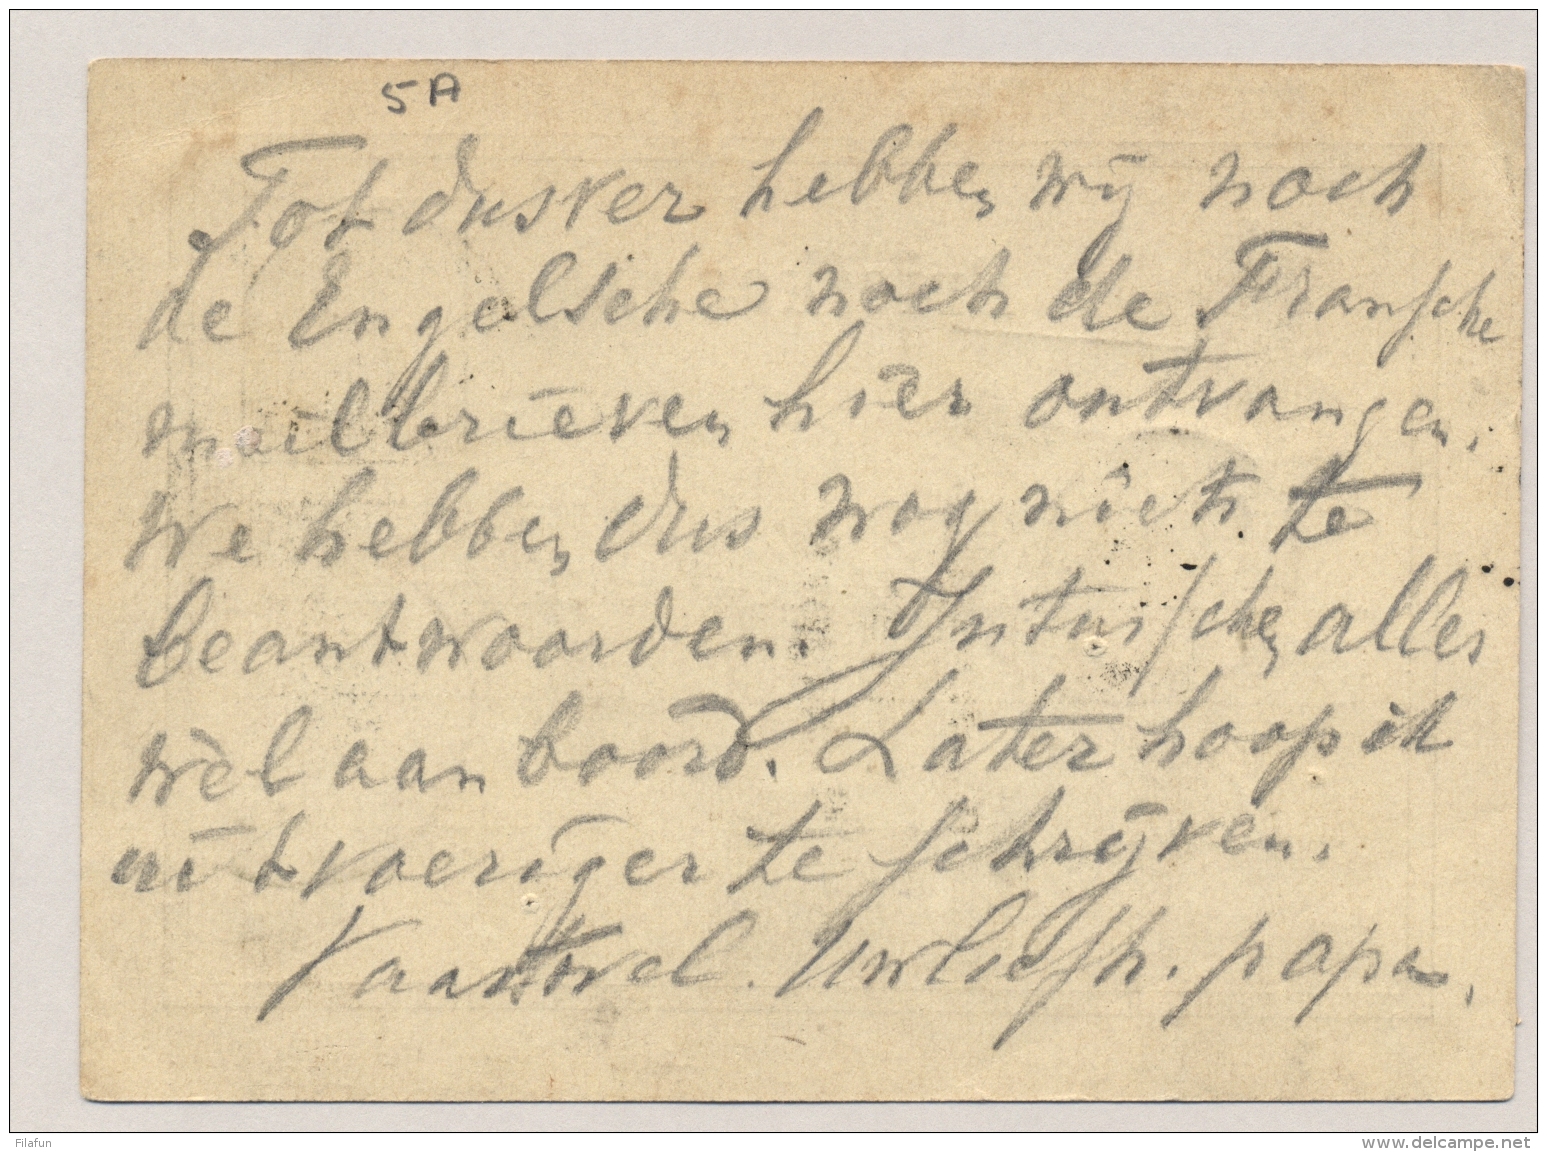 5A
Tot dusver hebben wij noch
de Engelsche noch de Fransche
mailbrieven hier ontvangen.
We hebben dus nog niets te
beantwoorden. Intusschen alles
wèl aan boord. Later hoop ik
uitvoeriger te schrijven.
Vaartwel. Uwliefh. papa.
Filafun
www.delcampe.net